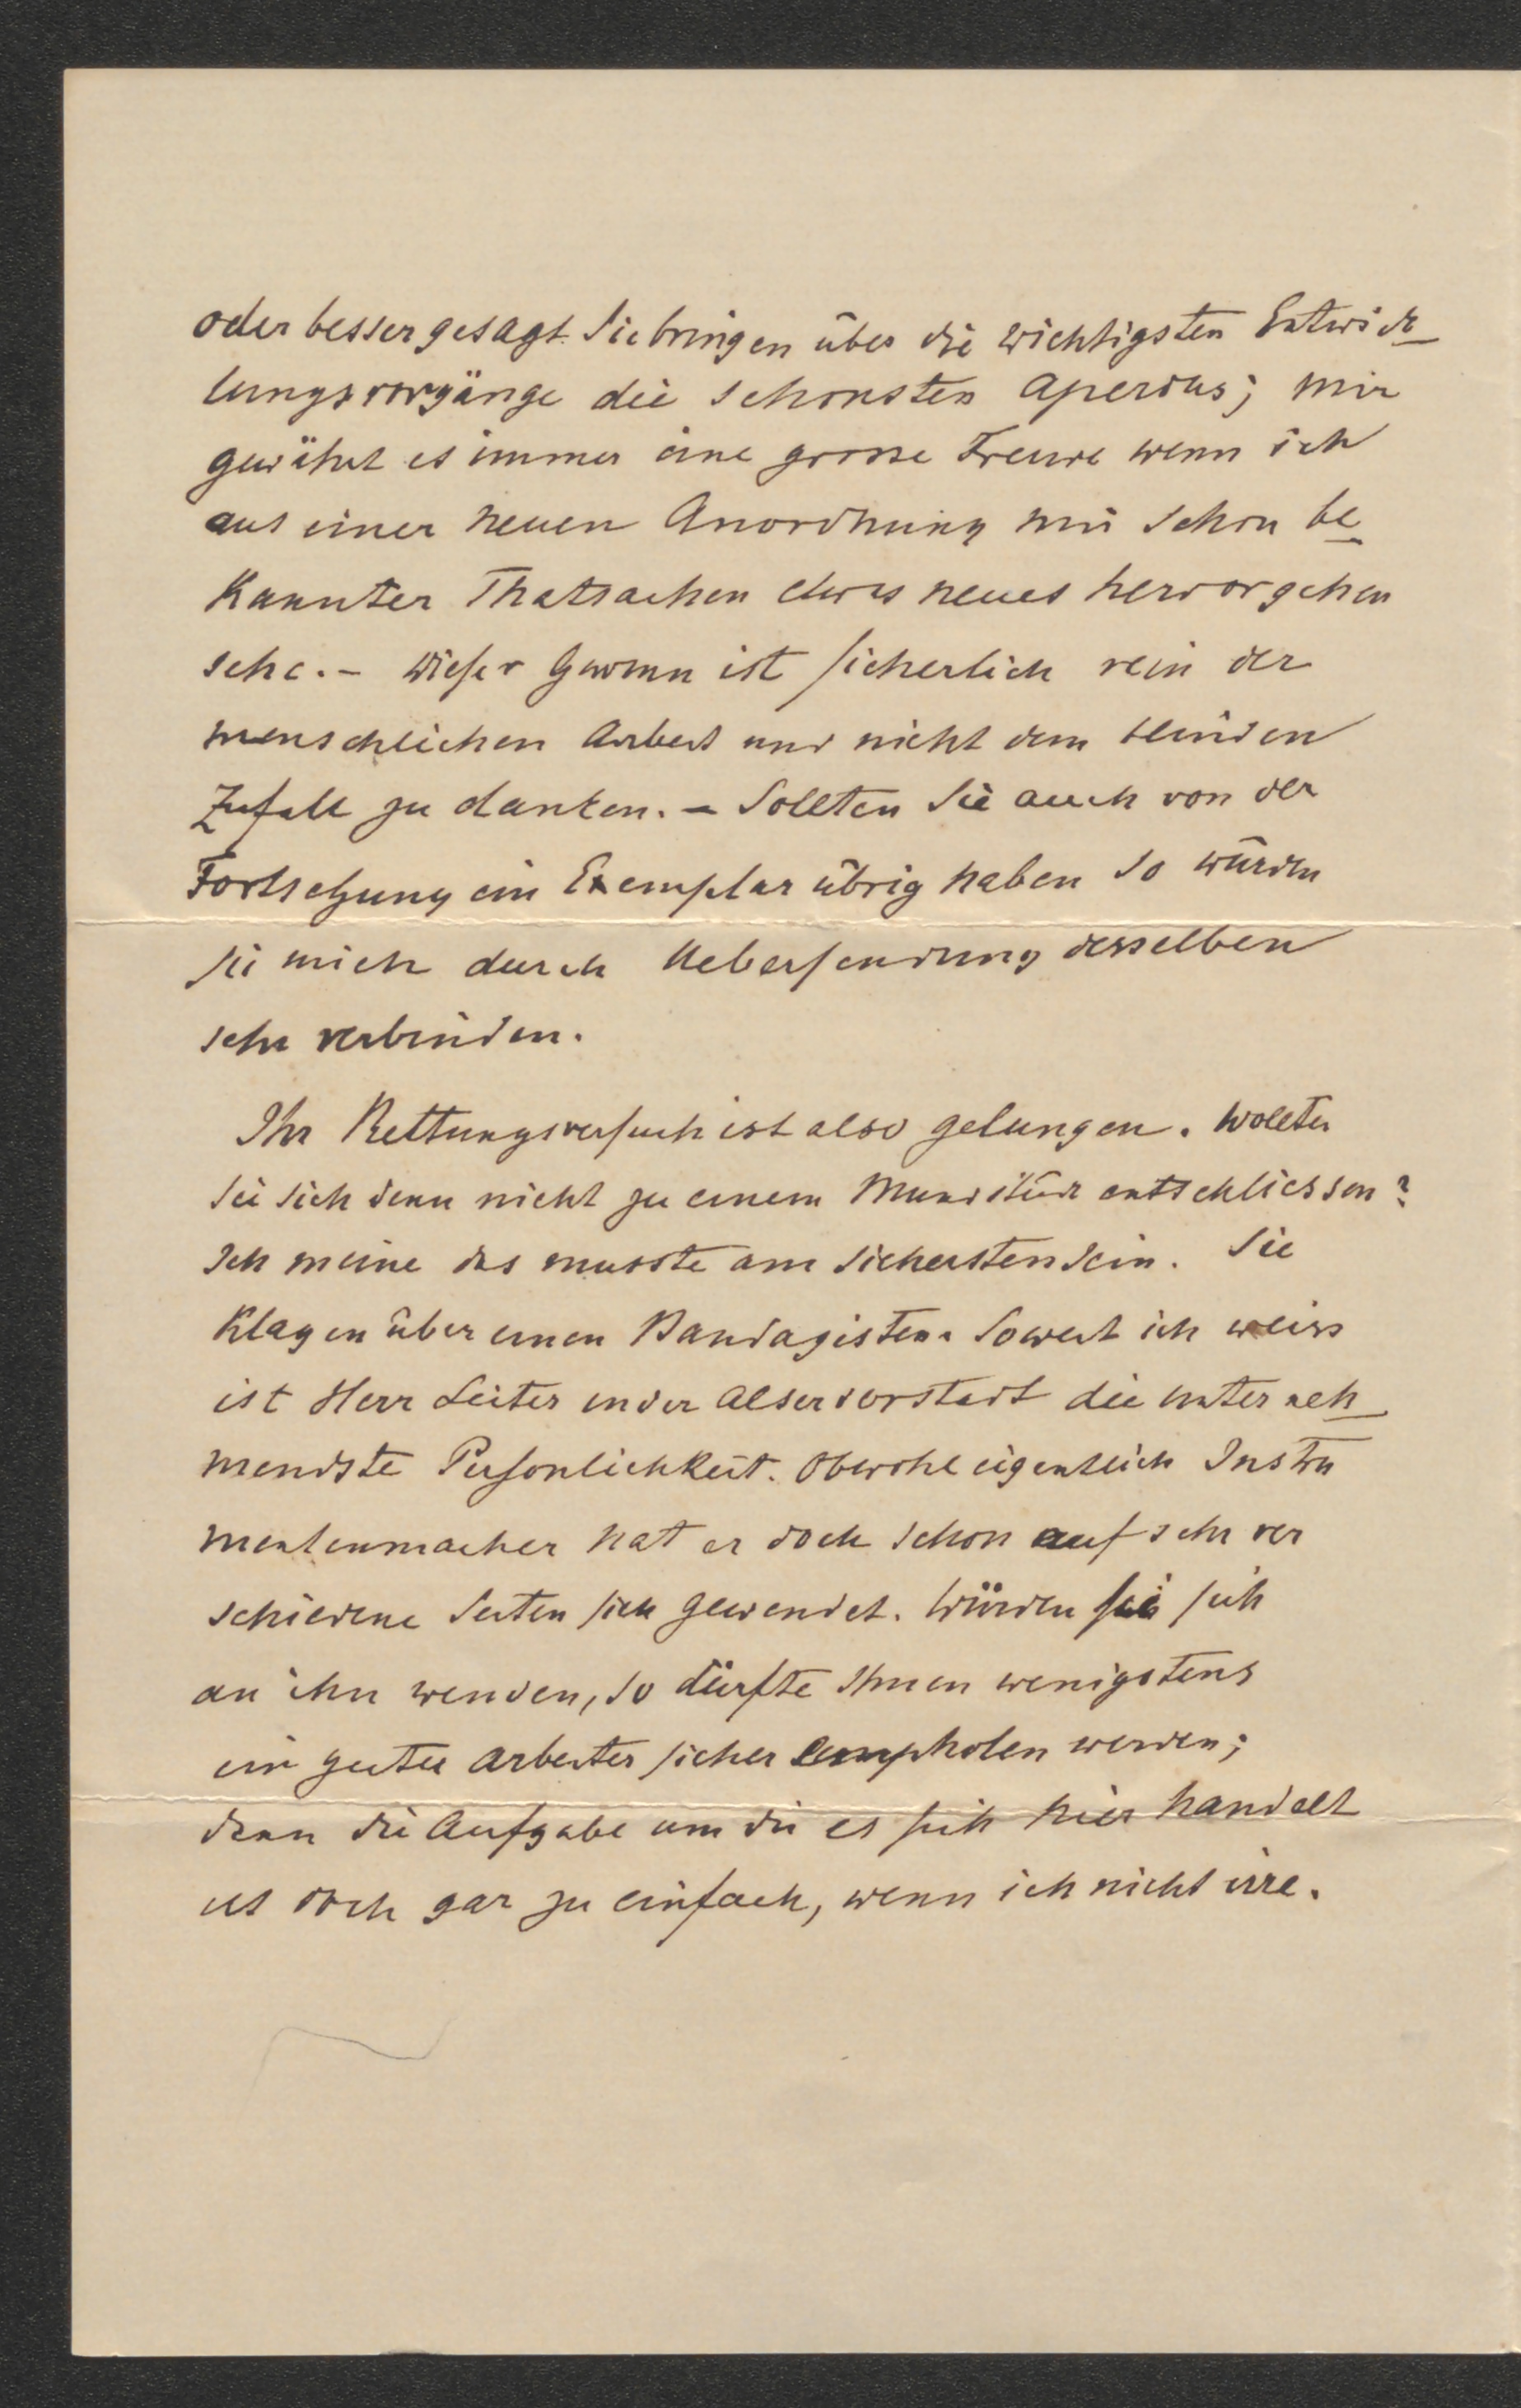 oder besser gesagt Sie bringen über die wichtigsten Entwick
lungsvorgänge die schonsten Apercus; mir
gewährt es immer eine grosse Freude wenn ich
aus einer neuen Anordnung mir schon be
kannter Thatsachen etwas neues hervorgehen
sehe. – Dieser Gewinn ist sicherlich rein der
menschlichen Arbeit und nicht dem blinden
Zufall zu danken. – Sollten Sie auch von der
Fortsetzung ein Exemplar übrig haben so würden
Sie mich durch Uebersendung desselben
sehr verbinden.
Ihr Rettungsversuch ist also gelungen. Wollten
Sie sich denn nicht zu einem Mundstück entschliessen?
Ich meine das musste am sichersten sein. Sie
klagen über einen Bandagisten. Soweit ich weiss
ist Herr Leiter in der Alservorstadt die unterneh
mendste Personlichkeit. Obwohl eigentlich Instru
mentenmacher hat er doch schon auf sehr ver
schiedene Seiten sich gewendet. Würden Sie sich
an ihn wenden, so dürfte Ihnen wenigstens
ein guter Arbeiter sicher empholen werden;
denn die Aufgabe um die es sich hier handelt
ist doch gar zu einfach, wenn ich nicht irre.